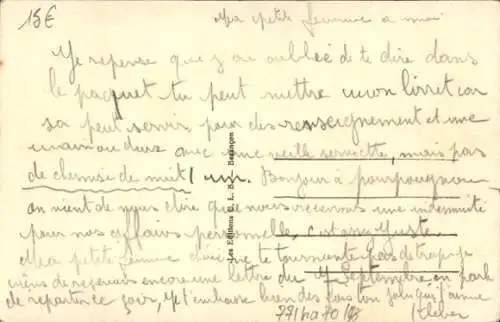 15€
Ma petite femme a moi
Je repense que j'ai oublié de te dire dans
le paquet tu peut mettre mon livret car
sa peut servir pour des renseignement et une
ou deux avec une veille serviette, mais pas
de chemise de nuit 1 un. Bonjour à
on vient de nous dire que nous recevrons une indemnité
pour nos affaires personnelle, c'est assez juste.
Ma petite femme chérie ne te tourmente pas de trop je
viens de recevoir encore une lettre du 4 Septembre, on parle
de repartir ce soir, je t'embrasse bien des fois ton Jules qui t'aime
Kleber
Les Editions C. L. B. Besançon